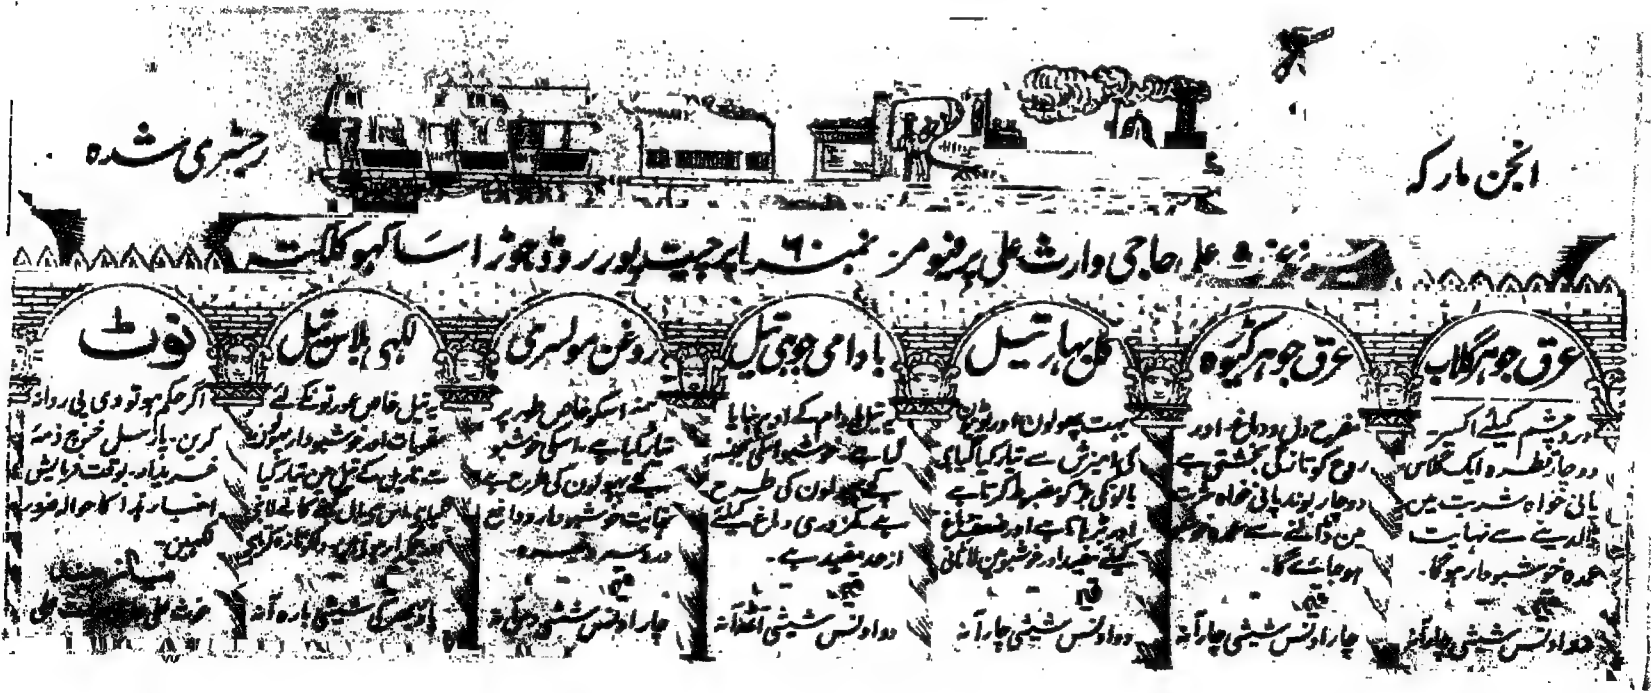 انجن مارکہ
رجسٹری شدہ
علی حاجی وارث علی پرفیومرز نمبر ۶۰ اپر چیت پور روڈ جوڑاسانکہو کلکتہ
عرق جوہر گلاب
درد چشم کیلئے اکسیر۔
دو چار قطرہ ایک گلاس
پانی خواہ شربت مین
ڈالدینے سے نہایت
عمدہ خوشبودار ہوگا۔
دو اونس شیشی چار آنہ
عرق جوہر کیوڑہ
مفرح دل و دماغ۔ اور
روح کو تازگی بخشتی ہے
دو چار بوند پانی خواہ شربت
مین ڈالنے سے عمدہ
ہو جائے گا۔
قیمت
چار اونس شیشی چار آنہ
گل بہار تیل
بہت پھولون اور
کی آمیزش سے تیار کیا گیا ہی
بالونکی جڑ کو مضبوط کرتا ہے
اور بڑہاتا ہے اور ضعف دماغ
کیلئے مفید اور خوشبو مین لاثانی
قیمت
دو اونس شیشی چار آنہ
بادامی جوہی تیل
یہ تیل بادام کے اوپر بنایا
گیا ہے۔ خوشبو اسکی بجنسہ
کے پھولون کی طرح
ہے کمزوری دماغ کیلئے
از حد مفید ہے۔
قیمت
دو اونس شیشی آٹھ آنہ
روغن مولسری
اسکو خاص طور پر
تیار کیا ہے۔ اسکی خوشبو
کے پھولون کی طرح ہے
نہایت خوشبودار و دافع
درد سر وغیرہ
قیمت
چار اونس شیشی آنہ
لکہی بلاس تیل
یہ تیل خاص عورتونکے لئے
اور خوشبودار
سے ناریل کے تیل مین تیار کیا
شیشی بارہ آنہ
نوٹ
اگر حکم ہو تو وی پی روانہ
کرین۔ پارسل خرچ ذمہ
خریدار۔ بوقت فرمایش
اخبار ہذا کا حوالہ ضرور
لکہین۔